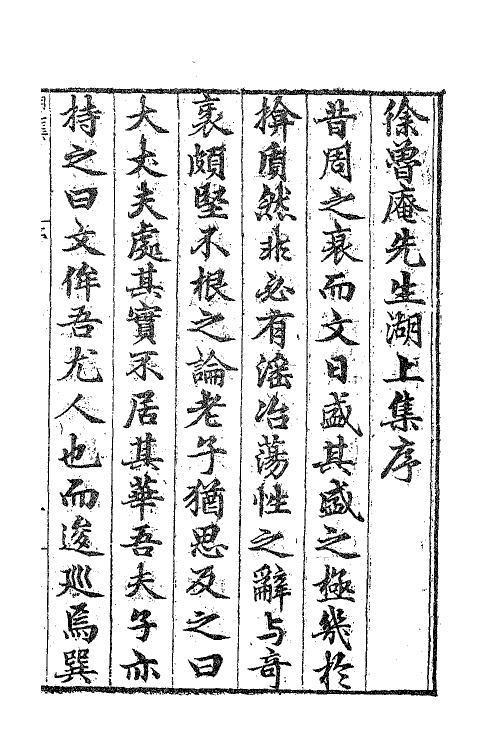 徐魯庵先生湖上集序
昔周之衰而文日盛其盛之極幾於
揜質然非必有滛冶蕩性之辭与奇
衺頗堅不根之論老子猶思及之曰
大丈夫處其實不居其華吾夫子亦
持之曰文侔吾尤人也而逡廵焉巽